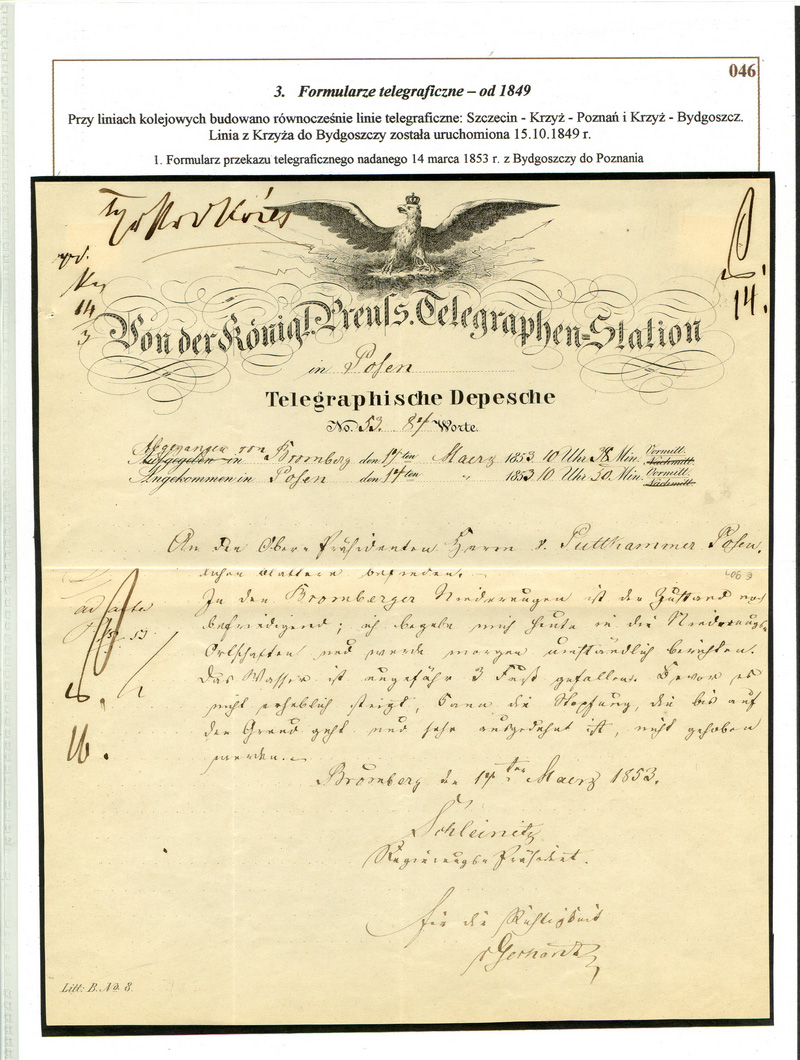 046
3. Formularze telegraficzne – od 1849
Przy liniach kolejowych budowano równocześnie linie telegraficzne: Szczecin - Krzyż - Poznań i Krzyż - Bydgoszcz.
Linia z Krzyża do Bydgoszczy została uruchomiona 15.10.1849 r.
1. Formularz przekazu telegraficznego nadanego 14 marca 1853 r. z Bydgoszczy do Poznania
14
3
14.
Von der Königl. Preuſs. Telegraphen-Station
in Posen
Telegraphische Depesche
No. 53. 84 Worte.
Abgegangen von
Aufgegeben in Bromberg den 14ten Maerz 1853 10 Uhr Min. Vormitt. Nachmitt.
Angekommen in Posen den 14ten " 1853 10 Uhr 50. Min. Vormitt. Nachmitt.
An den Ober-Präsidenten Herrn v. Puttkammer Posen.
lichen Blättern befinden.
ad acta
In den Bromberger Niederungen ist der Zustand noch
befriedigend; ich begebe mich heute in die Niederungs-
Ortschaften und werde morgen umständlich berichten.
Das Wasser ist ungefähr 3 Fuß gefallen. Bevor es
nicht erheblich steigt, kann die Stopfung, die bis auf
den Grund geht und sehr ausgedehnt ist, nicht gehoben
werden.
16.
Bromberg den 14ten Maerz 1853.
Schleinitz
Regierungs-Präsident.
für die Richtigkeit
Gerhardt
Litt: B. No 8.